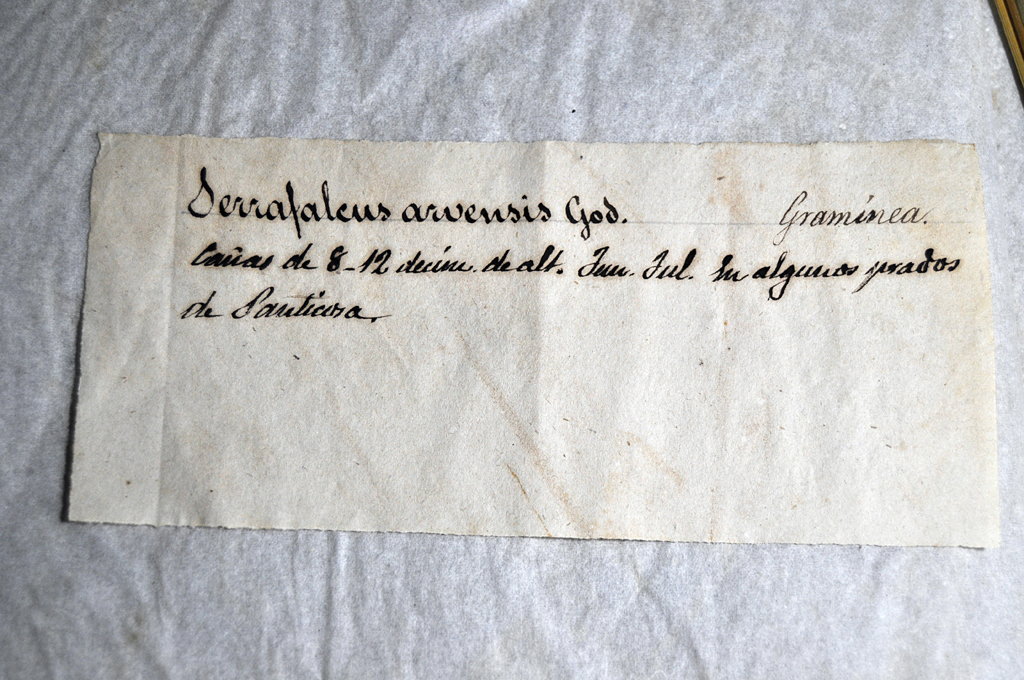 Serrafalcus arvensis God. Graminea.
Cañas de 8-12 decim. de alt. Jun. Jul. En algunos prados
de Panticosa.